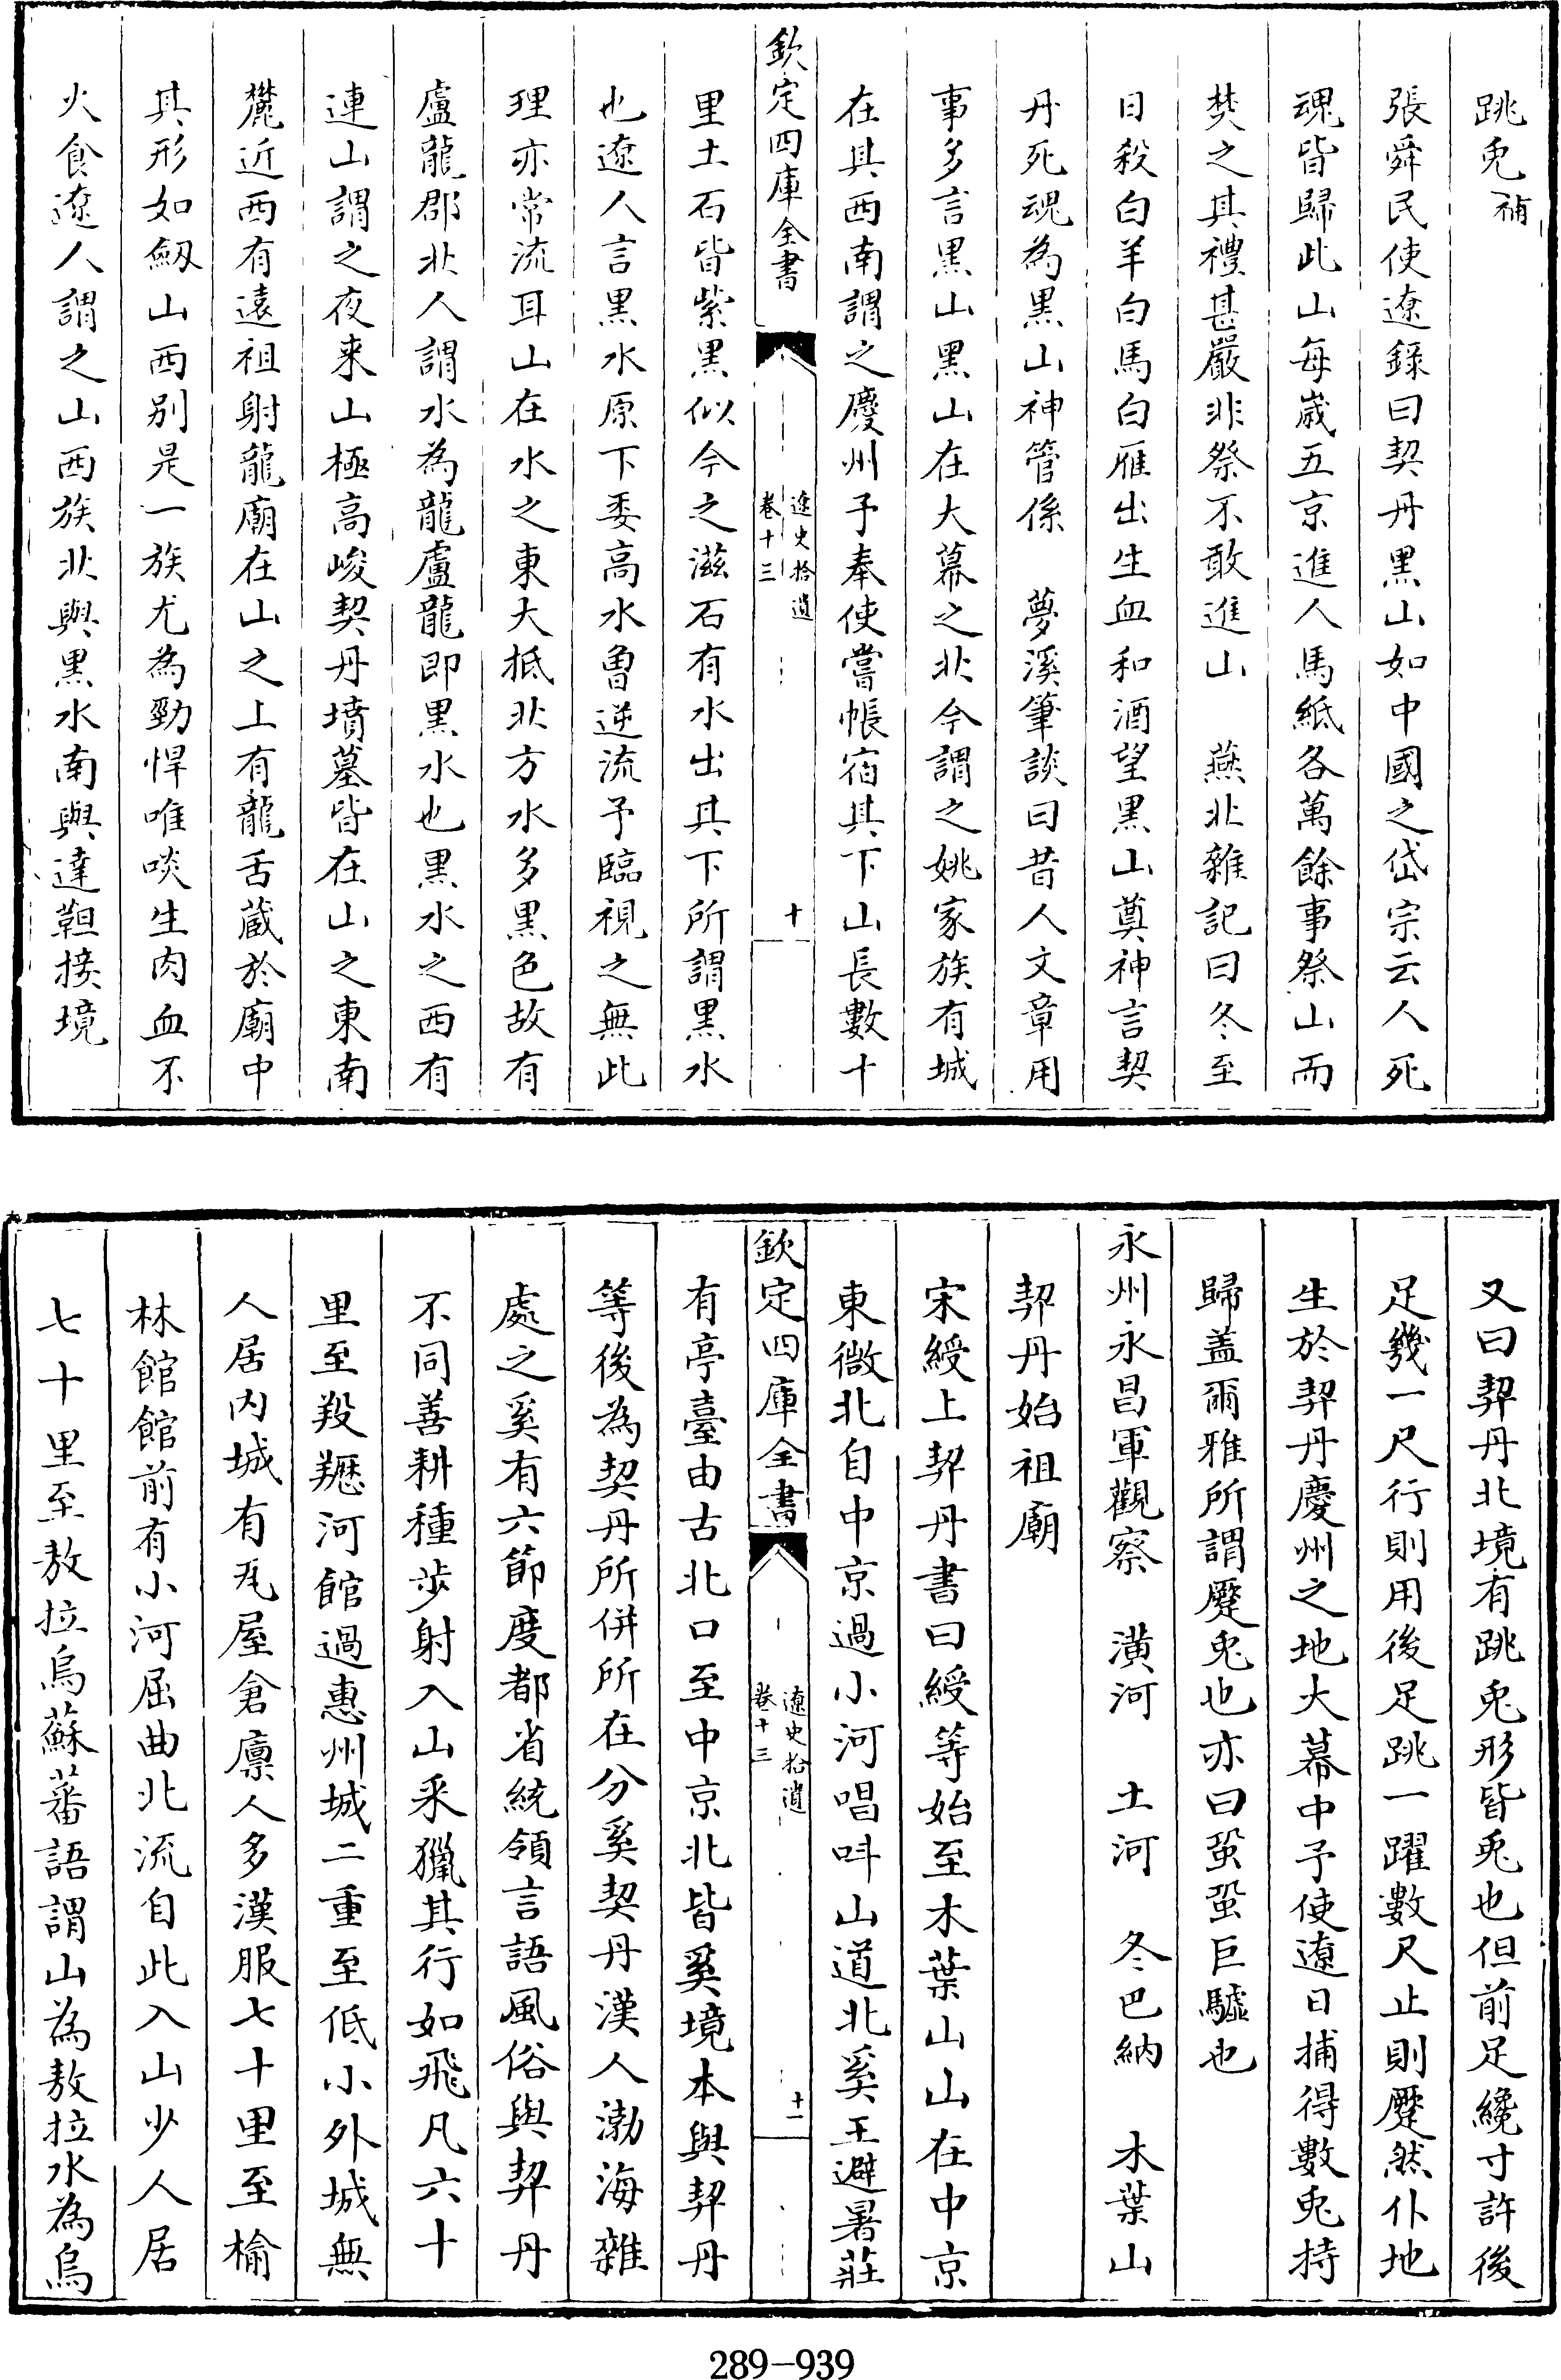 跳兎補
張舜民使遼錄曰契丹黑山如中國之岱宗云人死
魂皆歸此山每歲五京進人馬紙各萬餘事祭山而
焚之其禮甚嚴非祭不敢進山　燕北雜記曰冬至
日殺白羊白馬白雁出生血和酒望黑山奠神言契
丹死魂為黑山神管係　夢溪筆談曰昔人文章用
事多言黑山黑山在大幕之北今謂之姚家族有城
在其西南謂之慶州予奉使嘗帳宿其下山長數十
欽定四庫全書
遼史拾遺
卷十三
十
里土石皆紫黑似今之滋石有水出其下所謂黑水
也遼人言黑水原下委高水曾逆流予臨視之無此
理亦常流耳山在水之東大抵北方水多黑色故有
盧龍郡北人謂水為龍盧龍即黑水也黑水之西有
連山謂之夜来山極高峻契丹墳墓皆在山之東南
麓近西有遠祖射龍廟在山之上有龍舌藏於廟中
其形如劒山西別是一族尤為勁悍唯啖生肉血不
火食遼人謂之山西族北與黑水南與達靼接境
又曰契丹北境有跳兎形皆兎也但前足纔寸許後
足幾一尺行則用後足跳一躍數尺止則蹷然仆地
生於契丹慶州之地大幕中予使遼日捕得數兎持
歸蓋爾雅所謂蹷兎也亦曰蛩蛩巨驉也
永州永昌軍觀察　潢河　土河　冬巴納　木葉山
契丹始祖廟
宋綬上契丹書曰綬等始至木葉山山在中京
東微北自中京過小河唱呌山道北奚王避暑莊
欽定四庫全書
遼史拾遺
卷十三
十一
有亭臺由古北口至中京北皆奚境本與契丹
等後為契丹所併所在分奚契丹漢人渤海雜
處之奚有六節度都省統領言語風俗與契丹
不同善耕種步射入山采獵其行如飛凡六十
里至羖䍽河館過惠州城二重至低小外城無
人居內城有瓦屋倉廩人多漢服七十里至榆
林館館前有小河屈曲北流自此入山少人居
七十里至敖拉烏蘇蕃語謂山為敖拉水為烏
289-939